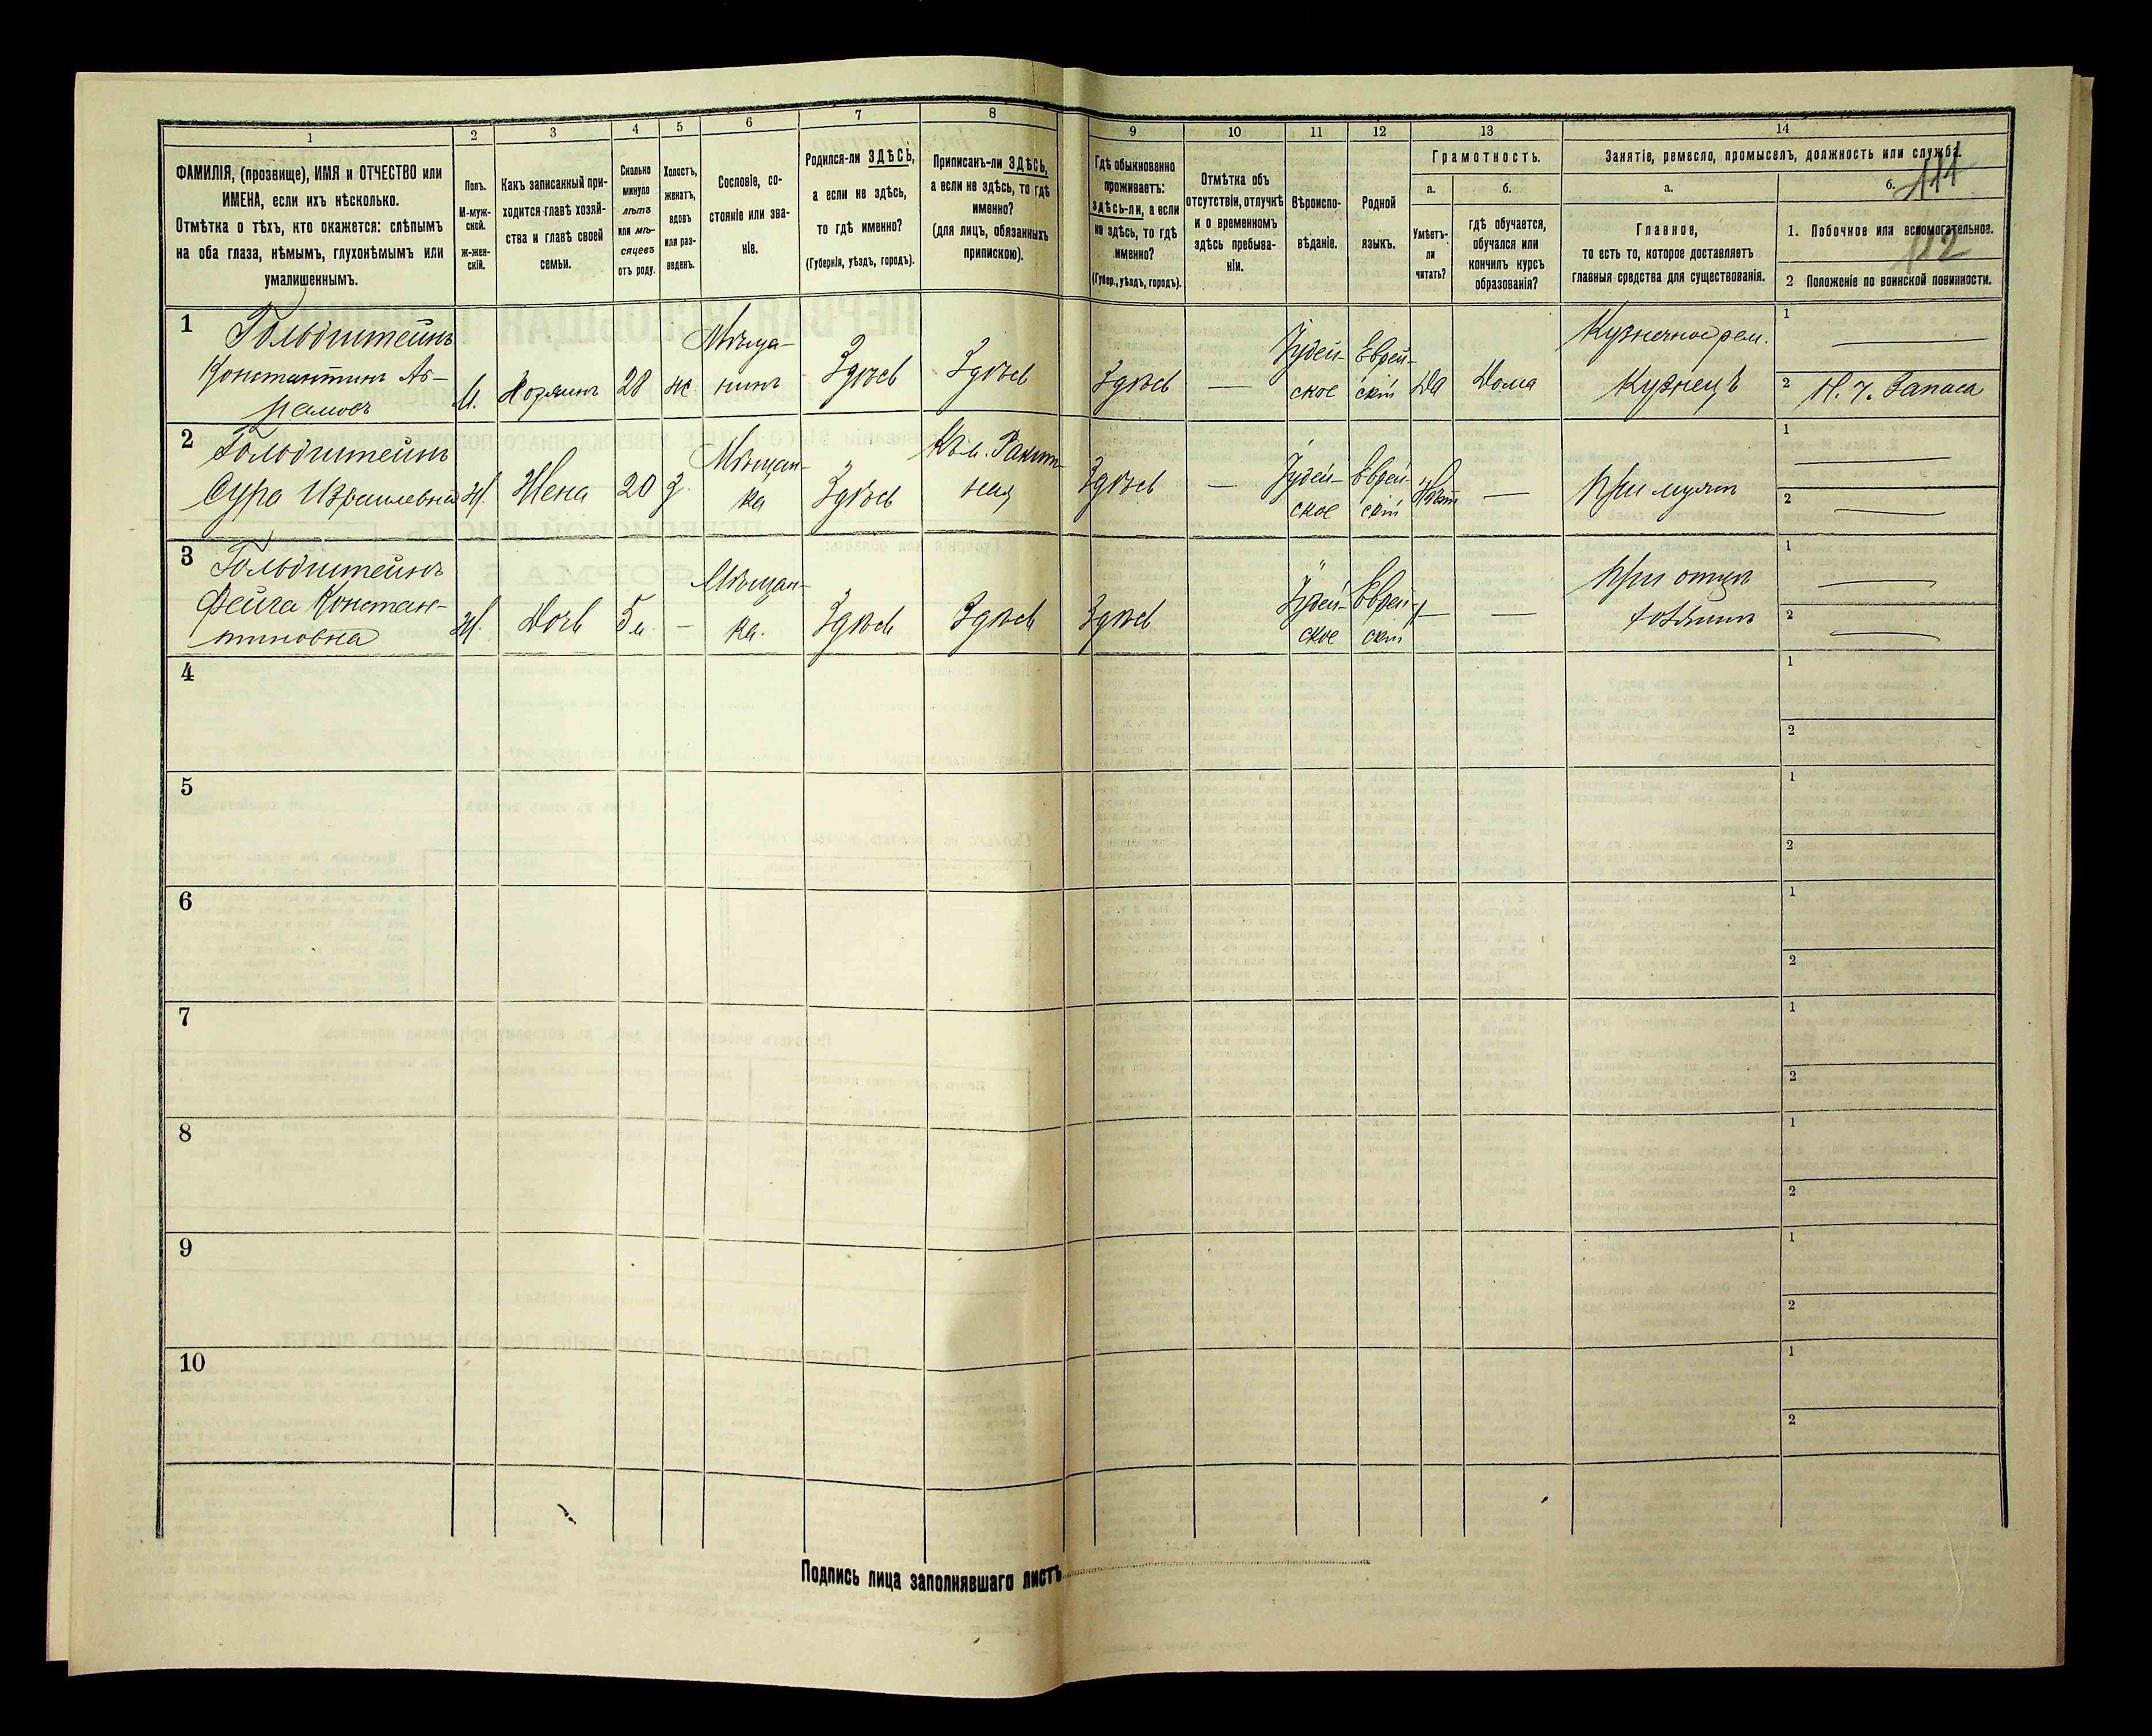 1
2
3
4
5
6
7
8
9
10
11
12
13
14
ФАМИЛІЯ, (прозвище), ИМЯ и ОТЧЕСТВО или
ИМЕНА, если ихъ нѣсколько.
Отмѣтка о тѣхъ, кто окажется: слѣпымъ
на оба глаза, нѣмымъ, глухонѣмымъ или
умалишеннымъ.
Полъ.
М-муж-
ской.
ж-жен-
скій.
Какъ записанный при-
ходится главѣ хозяй-
ства и главѣ своей
семьи.
Сколько
минуло
лѣтъ
или мѣ-
сяцевъ
отъ роду.
Холостъ,
женатъ,
вдовъ
или раз-
веденъ.
Сословіе, со-
стояніе или зва-
ніе.
Родился-ли ЗДѢСЬ,
а если не здѣсь,
то гдѣ именно?
(Губернія, уѣздъ, городъ).
Приписанъ-ли ЗДѢСЬ,
а если не здѣсь, то гдѣ
именно?
(для лицъ, обязанныхъ
припискою).
Гдѣ обыкновенно
проживаетъ:
здѣсь-ли, а если
не здѣсь, то гдѣ
именно?
(Губер., уѣздъ, городъ).
Отмѣтка объ
отсутствіи, отлучкѣ
и о временномъ
здѣсь пребыва-
ніи.
Вѣроиспо-
вѣданіе.
Родной
языкъ.
Грамотность.
а.
Умѣетъ-
ли
читать?
б.
гдѣ обучается,
обучался или
кончилъ курсъ
образованія?
Занятіе, ремесло, промыселъ, должность или служба.
а.
Главное,
то есть то, которое доставляетъ
главныя средства для существованія.
б.
111
1. Побочное или вспомогательное.
112
2 Положеніе по воинской повинности.
1
Гольдштейнъ
Константинъ Ав-
рамовъ
М.
Хозяинъ
28
ж
Мѣща-
нинъ
Здѣсь
Здѣсь
Здѣсь
—
Іудей-
ское
Еврей-
скій
Да
Дома
Кузнечное рем.
Кузнецъ
1
—
2
Н. Ч. Запаса
2
Гольдштейнъ
Сура Израилевна
Ж.
Жена
20
З.
Мѣщан-
ка
Здѣсь
Здѣсь
—
Іудей-
ское
Еврей-
скій
Нѣтъ
—
При мужѣ
1
—
2
—
3
Гольдштейнъ
Фейга Констан-
тиновна
Ж.
Дочь
5 м.
—
Мѣщан-
ка.
Здѣсь
Здѣсь
Здѣсь
Іудей-
ское
Еврей-
скій
—
—
При отцѣ
1
—
2
—
4
1
2
5
1
2
6
1
2
7
1
2
8
1
2
9
1
2
10
1
2
Подпись лица заполнявшаго листъ